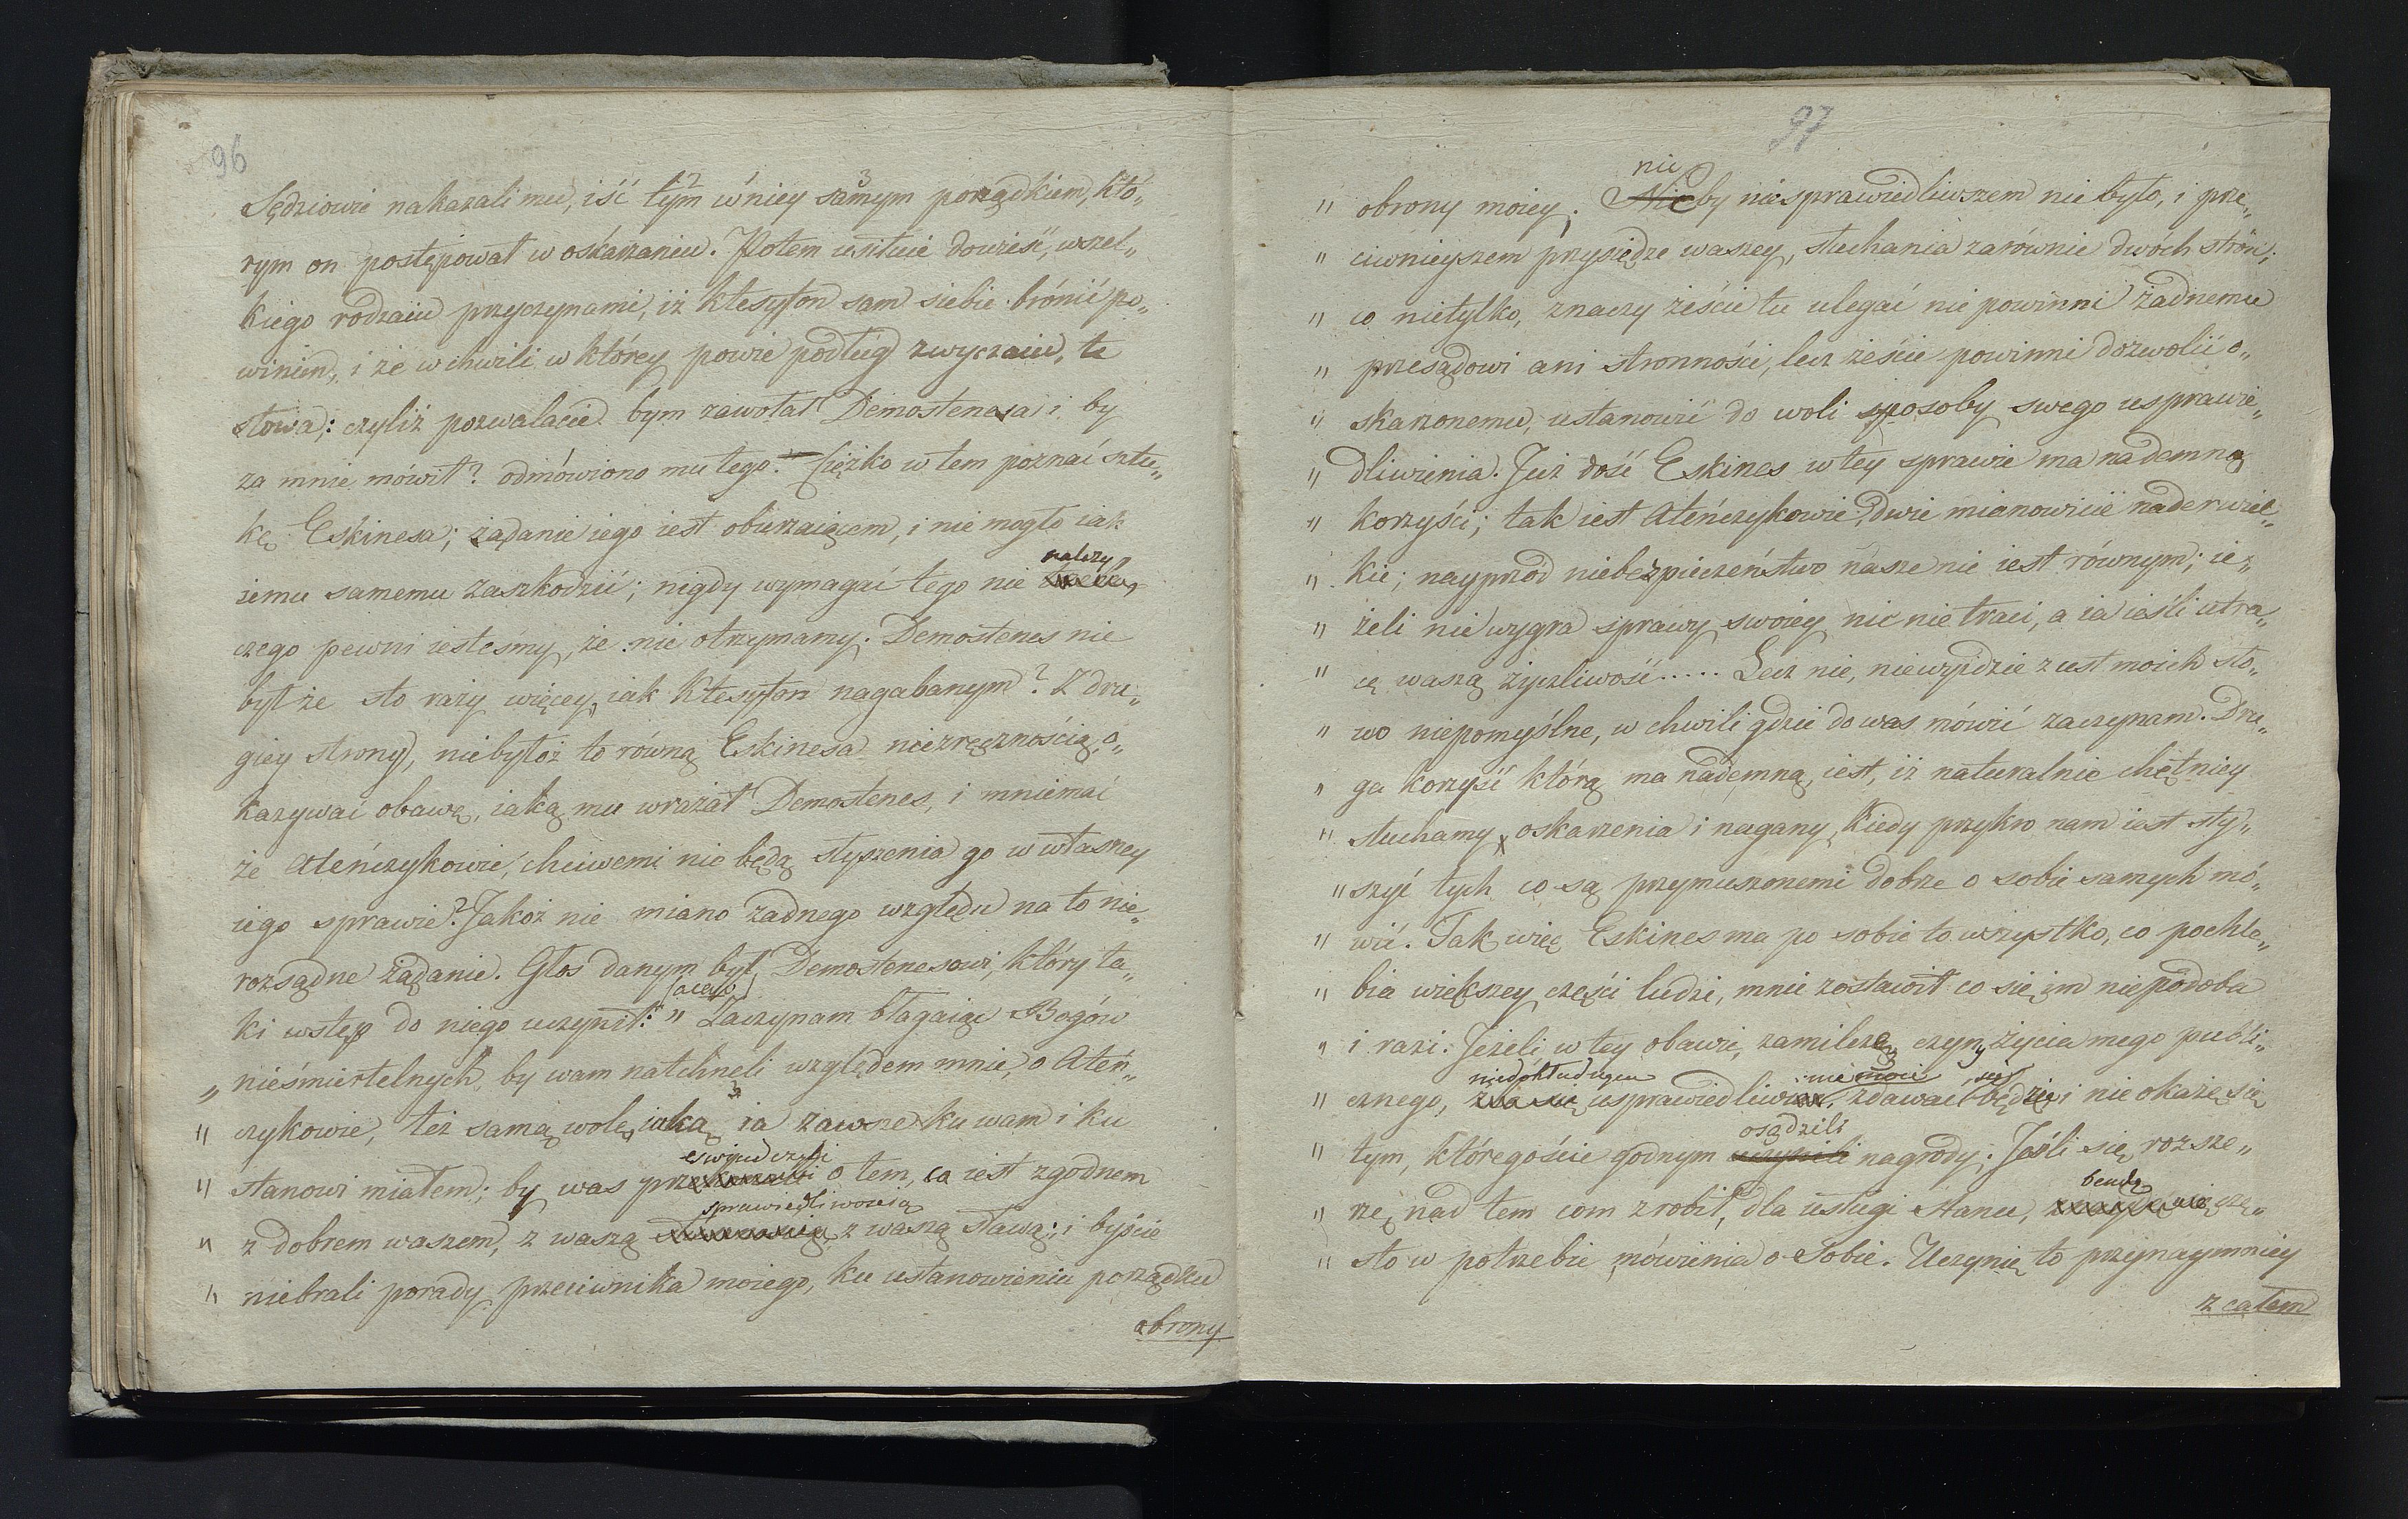 96
Sędziowie nakazali mu, iść tym w niey samym porządkiem, któ„
rym on postępował w oskarzaniu. Potem usiłuie dowieść, wszel„
kiego rodzaiu przyczynami, iż Ktesyfon sam siebie brónić po„
winien, i że w chwili w którey powie podług zwyczaiu, te
słowa: czyliż pozwalacie bym zawołał Demostenesa i by
za mnie mówił? odmówiono mu tego. — Ciężko w tem poznać sztu„
kę Eskinesa; żądanie iego iest oburzaiącem, i nie mogło iak
należy,
iemu samemu zaszkodzić; nigdy wymagać tego nie
czego pewni iesteśmy, że nie otrzymamy. Demostenes nie
był że sto razy więcey, iak Ktesyfon nagabanym? Z dru„
giey strony, niebyłoż to równą Eskinesa niezręcznością, o„
kazywać obawę, iaką mu wrażał Demostenes, i mniemać
że Ateńczykowie, chciwemi nie będą słyszenia go w własney
iego sprawie? Jakoż nie miano żadnego względu na to nie„
rozsądne żądanie. Głos danym był Demostenesowi, który ta„
ki wstęp do niego uczynił: „ Zaczynam błagaiąc Bogów
„ nieśmiertelnych, by wam natchneli względem mnie, o Ateń„
„ czykowie, też samą wolę, iaką ia zawsze ku wam i ku
„ stanowi miałem; by was o tem, co iest zgodnem
sprawiedliwoscią
„ z dobrem waszem, z waszą z waszą sławą; i byście
„ niebrali porady przeciwnika moiego, ku ustanowieniu porządku
obrony
97
nic
„ obrony moiey. Nicby niesprawiedliwszem nie było, i prze„
„ ciwnieyszem przysiędze waszey, słuchania zarównie dwóch strón;
„ co nietylko, znaczy żeście tu ulegać nie powinni żadnemu
„ przesądowi ani stronności, lecz żeście powinni dozwolić o„
„ skarzonemu, ustanowić do woli sposoby swego usprawie„
„ dliwienia. Już dość Eskines w tey sprawie ma nademną
„ korzyści; tak iest Ateńczykowie, dwie mianowicie nader wiel„
„ kie; nayprzód niebezpieczeństwo nasze nie iest równym; ie„
„ żeli nie wygra sprawy swoiey, nic nie traci, a ia ieśli utra„
„ cę waszą życzliwość..... Lecz nie, niewyidzie z ust moich sło„
„ wo niepomyślne, w chwili gdzie do was mówić zaczynam. Dru„
„ ga korzyść którą ma nademną, iest, iż naturalnie chętniey
„ słuchamy oskarzenia i nagany, kiedy przykro nam iest sły„
„ szyć tych co są przymuszonemi dobrze o sobie samych mó„
„ wić. Tak więc Eskines ma po sobie to wszystko, co pochle„
„ bia większey części ludzi, mnie zostawił co się im niepodoba
„ i razi. Jeżeli w tey obawie, zamilczę czyny życia mego publi„
„ cznego, usprawiedliwiać, zdawać się będzie i nie okażę się
osądzili
„ tym, któregoście godnym uczynili nagrody; Jeśli się rozsze„
bendę
„ rzę nad tem com zrobił, dla usługi Stanu, czę„
„ sto w potrzebie mówienia o Sobie. Uczynię to przynaymniey
z całem